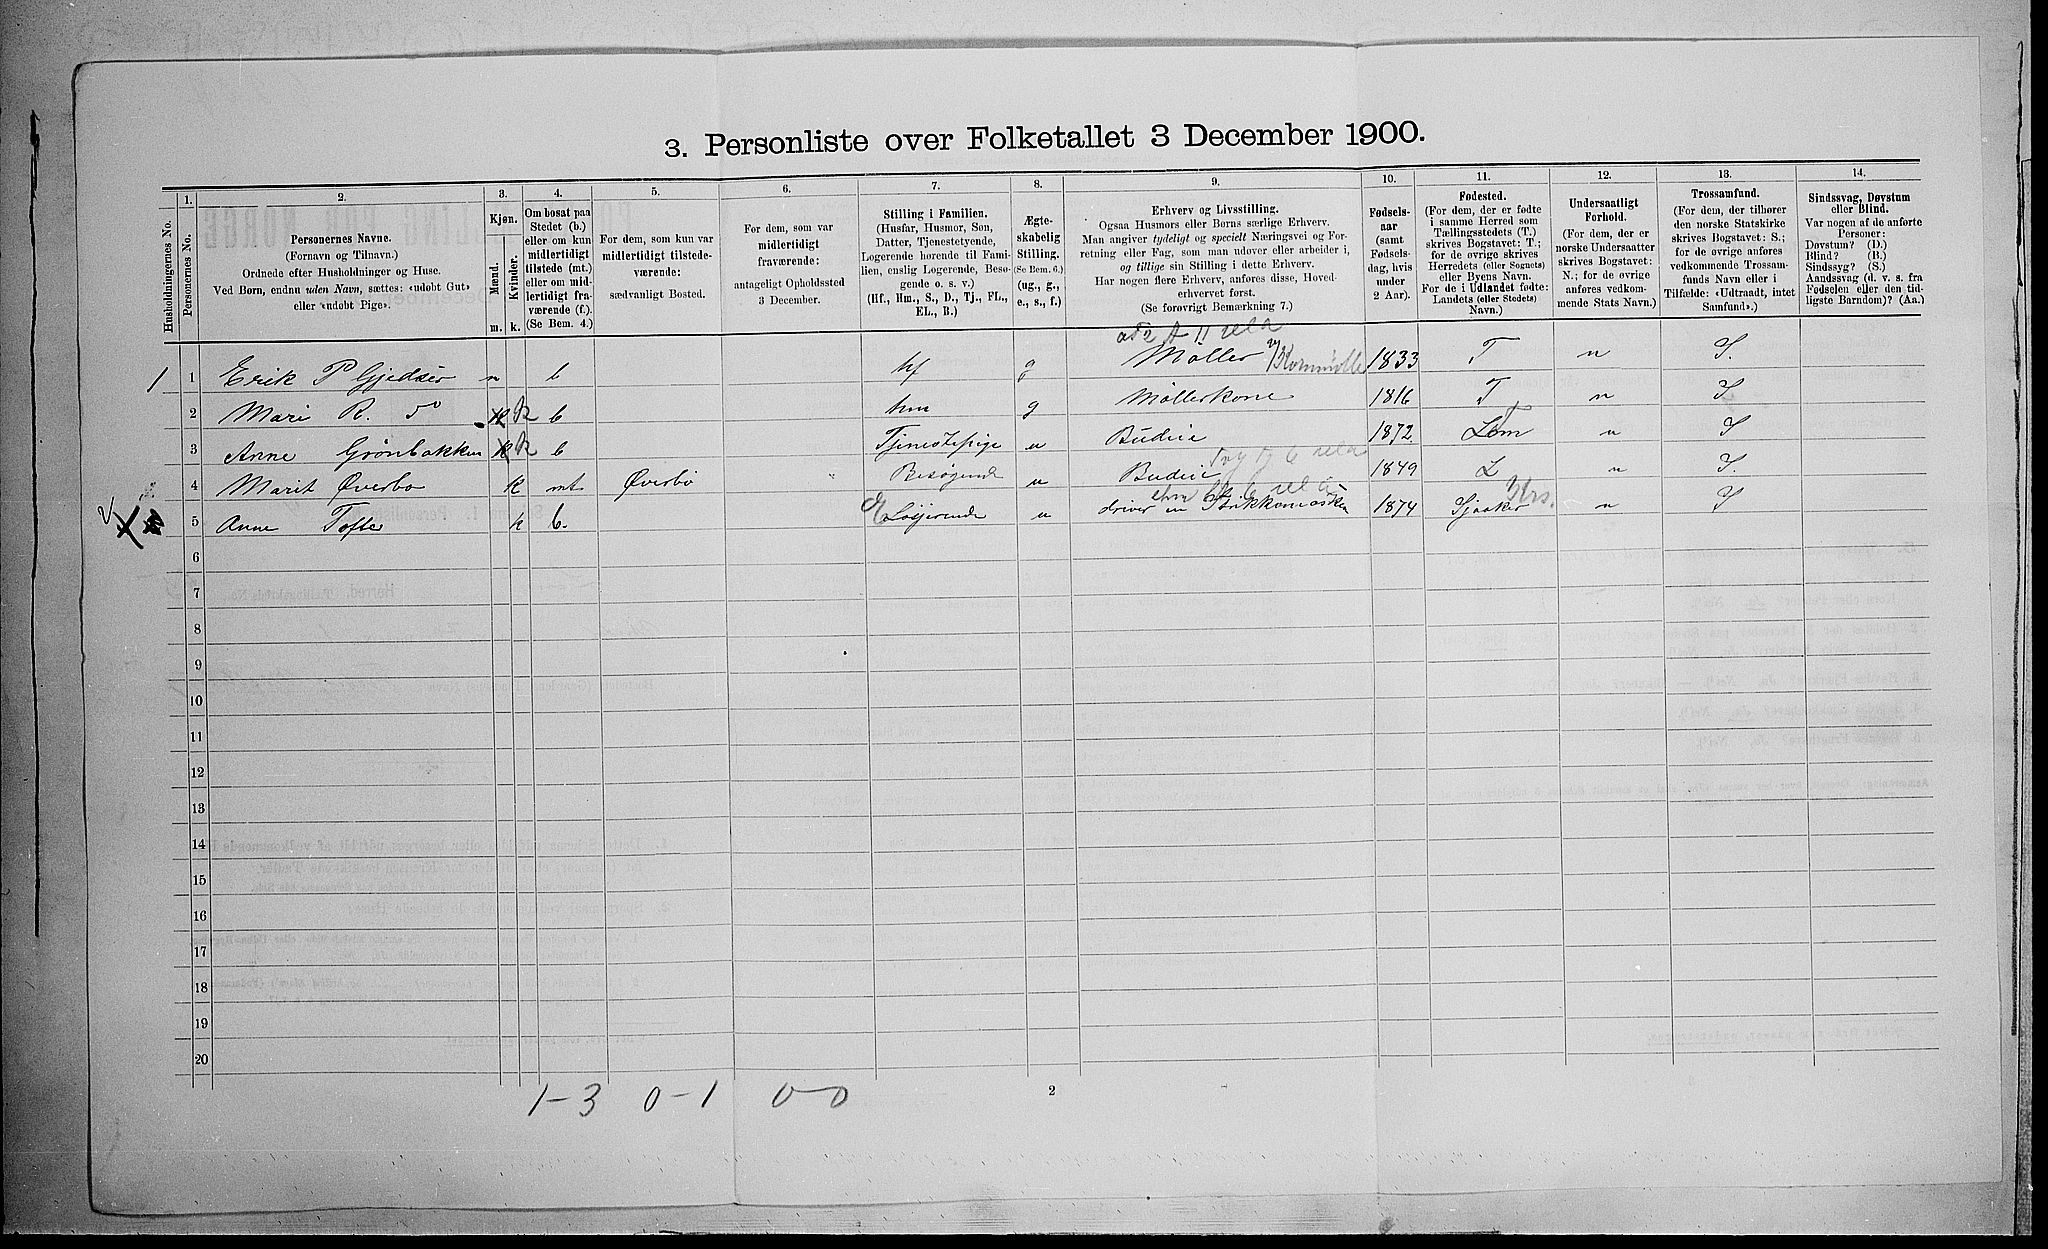 3. Personliste over Folketallet 3 December 1900.
1. 2. 3. 4. 5. 6. 7. 8. 9. 10. 11. 12. 13. 14.
Husholdningernes No.
Personernes No.
Personernes Navne.
(Fornavn og Tilnavn.)
Ordnede efter Husholdninger og Huse.
Ved Børn, endnu uden Navn, sættes: «udøbt Gut»
eller «udøbt Pige».
Kjøn.
Mænd.
Kvinder.
m. k.
Om bosat paa
Stedet (b.)
eller om kun
midlertidigt
tilstede (mt.)
eller om mid-
lertidigt fra-
værende (f.).
(Se Bem. 4.)
For dem, som kun var
midlertidigt tilstede-
værende:
sædvanligt Bosted.
For dem, som var
midlertidigt
fraværende:
antageligt Opholdssted
3 December.
Stilling i Familien.
(Husfar, Husmor, Søn,
Datter, Tjenestetyende,
Logerende hørende til Fami-
lien, enslig Logerende, Besø-
gende o. s. v.)
(Hf., Hm., S., D., Tj., FL.,
EL., B.)
Ægte-
skabelig
Stilling.
(Se Bem. 6.)
(ug., g.,
e., s., f.)
Erhverv og Livsstilling.
Ogsaa Husmors eller Børns særlige Erhverv.
Man angiver tydeligt og specielt Næringsvei og For-
retning eller Fag, som man udøver eller arbeider i,
og tillige sin Stilling i dette Erhverv.
Har nogen flere Erhverv, anføres disse, Hoved-
erhvervet først.
(Se forøvrigt Bemærkning 7.)
Fødsels-
aar
(samt
Fødsels-
dag, hvis
under
2 Aar).
Fødested.
(For dem, der er fødte
i samme Herred som
Tællingsstedets (T.)
skrives Bogstavet: T;
for de øvrige skrives
Herredets (eller Sognets)
eller Byens Navn.
For de i Udlandet fødte:
Landets (eller Stedets)
Navn.)
Undersaatligt
Forhold.
(For dem, der er
norske Undersaatter
skrives Bogstavet:
N.; for de øvrige
anføres vedkom-
mende Stats Navn.)
Trossamfund.
(For dem, der tilhører
den norske Statskirke
skrives Bogstav: S.;
for de øvrige anføres
vedkommende Trossam-
funds Navn eller i
Tilfælde: «Udtraadt, intet
Samfund».)
Sindssvag, Døvstum
eller Blind.
Var nogen af de anførte
Personer:
Døvstum? (D.)
Blind? (B.)
Sindssyg? (S.)
Aandssvag (d. v. s. fra
Fødselen eller den tid-
ligste Barndom)? (Aa.)
1 1 Erik P Gjedser b hf g Møller Kornmølle 1833 T n S.
2 Mari R. do k b hm g Møllerkone 1816 T n S
3 Anne Grønbakken k b Tjenestepige u Budeie 1872 Lom T n S
4 Marit Øverbo k mt Øverbo Besøgende u Budeie 1849 L n S.
5 Anne Tofte k b. E Logerende u driver en Strikkemaskin 1874 n S
6
7
8
9
10
11
12
13
14
15
16
17
18
19
20
1-3 0-1 0-0
2